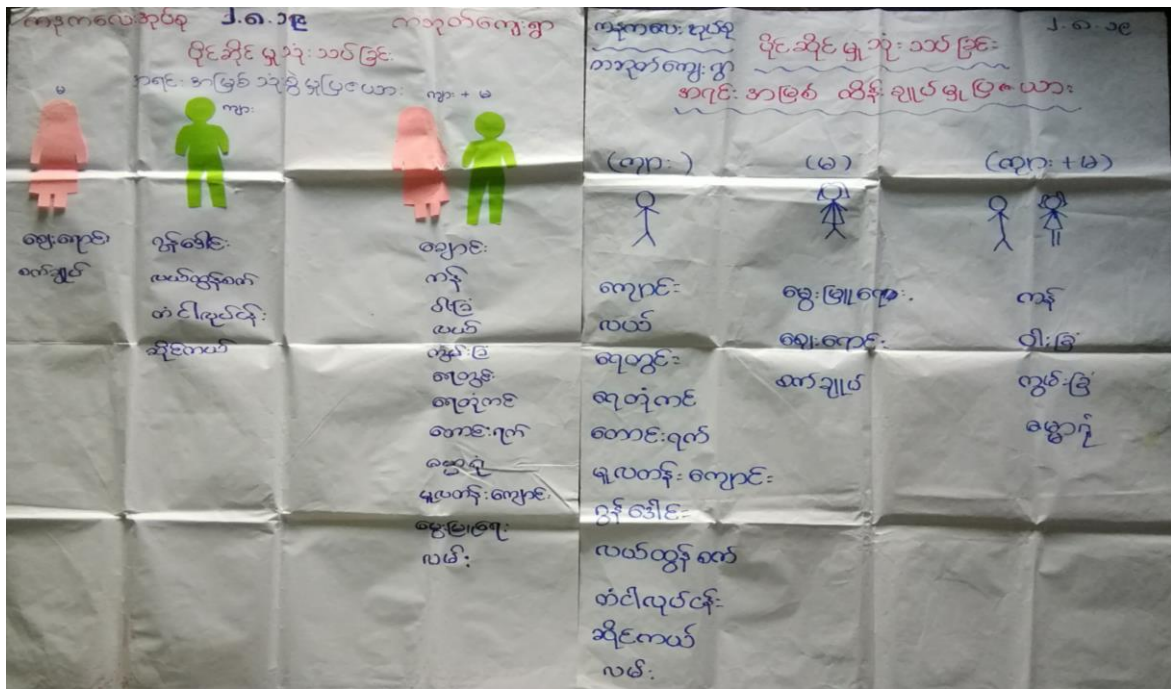 ကနုကလေးအုပ်စု ၂.၈.၁၉ ကဘုတ်ကျေးရွာ
ပိုင်ဆိုင်မှုသုံးသပ်ခြင်း
အရင်းအမြစ်သုံးစွဲမှုပြဇယား
မ
ကျား
ကျား + မ
ဈေးရောင်း
စက်ချုပ်
ဂွန်ဒေါင်း
လယ်ထွန်စက်
တံငါလုပ်ငန်း
ဆိုင်ကယ်
ချောင်း
ကန်
ဝါးခြံ
လယ်
ကွမ်းခြံ
ရေတွင်း
ရေတုံကင်
တောင်းရက်
ဓမ္မာရုံ
မူလတန်းကျောင်း
မွေးမြူရေး
လမ်း
ကနုကလေးအုပ်စု
ကဘုတ်ကျေးရွာ
ပိုင်ဆိုင်မှုသုံးသပ်ခြင်း
၂.၈.၁၉
အရင်းအမြစ် ထိန်းချုပ်မှုပြဇယား
(ကျား) (မ) (ကျား + မ)
ကျောင်း
လယ်
ရေတွင်း
ရေတုံကင်
တောင်းရက်
မူလတန်းကျောင်း
ဂွန်ဒေါင်း
လယ်ထွန်စက်
တံငါလုပ်ငန်း
ဆိုင်ကယ်
လမ်း
မွေးမြူရေး
ဈေးရောင်း
စက်ချုပ်
ကန်
ဝါးခြံ
ကွမ်းခြံ
ဓမ္မာရုံ